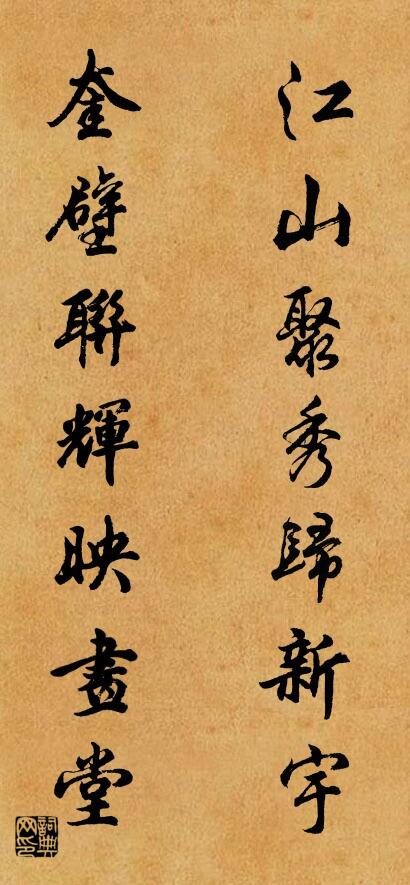 江山聚秀歸新宇
奎壁聯輝映畫堂
詞典網印